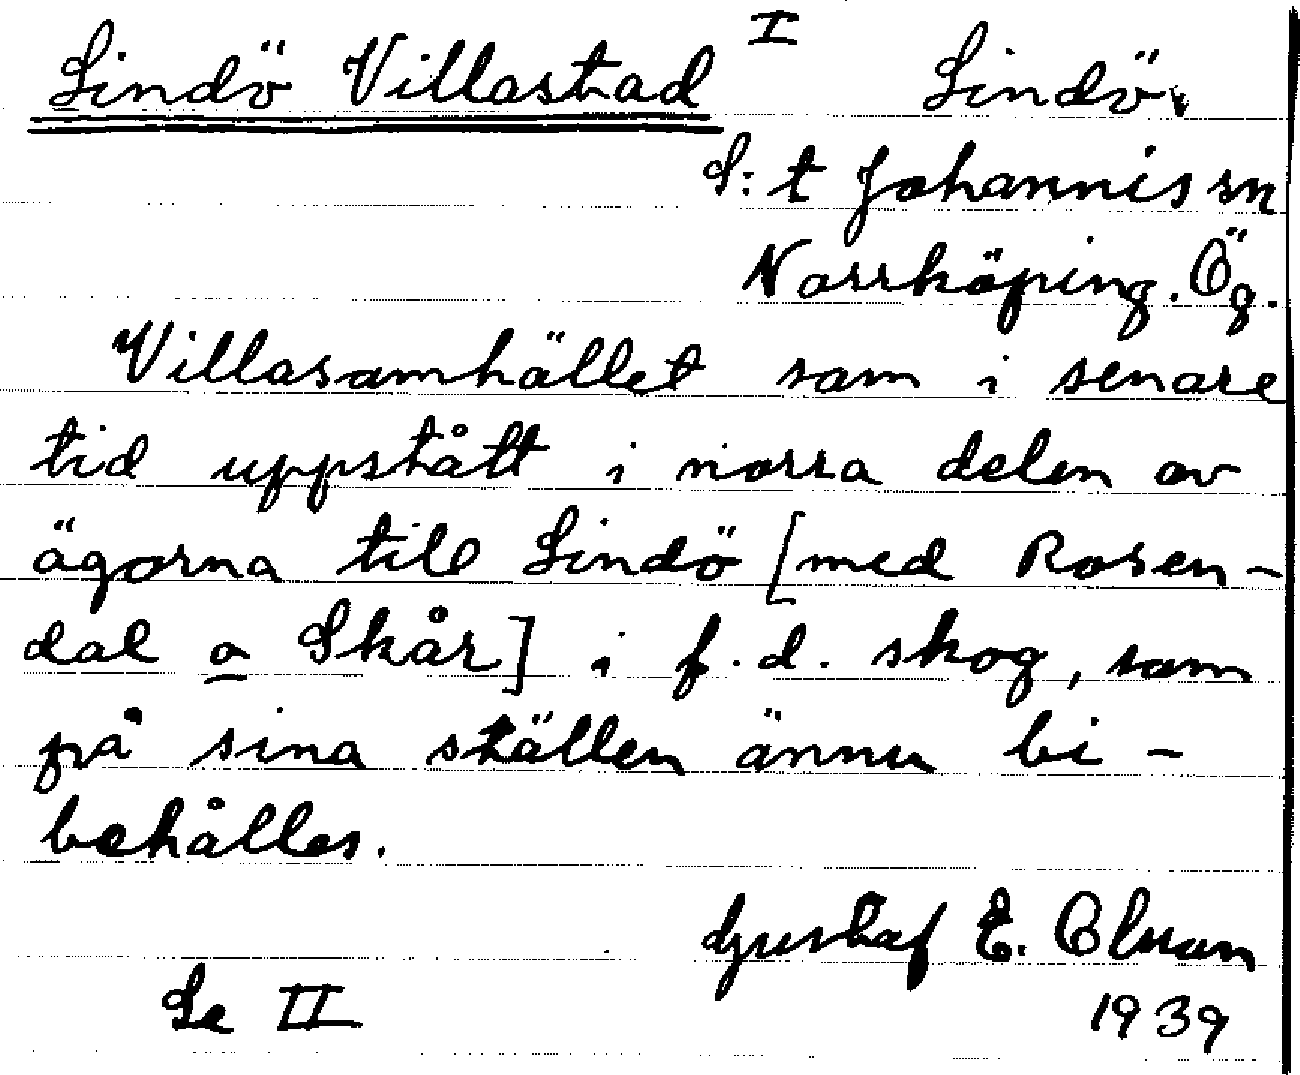 Lindö Villastad I Lindö,
S:t Johannis sn
Norrköping. Ög.
Villasamhället som i senare
tid uppstått i norra delen av
ägorna till Lindö [med Rosen-
dal o Skår] i f.d. skog, som
på sina ställen ännu bi-
behålles.
Gustaf E.
Se II 1939